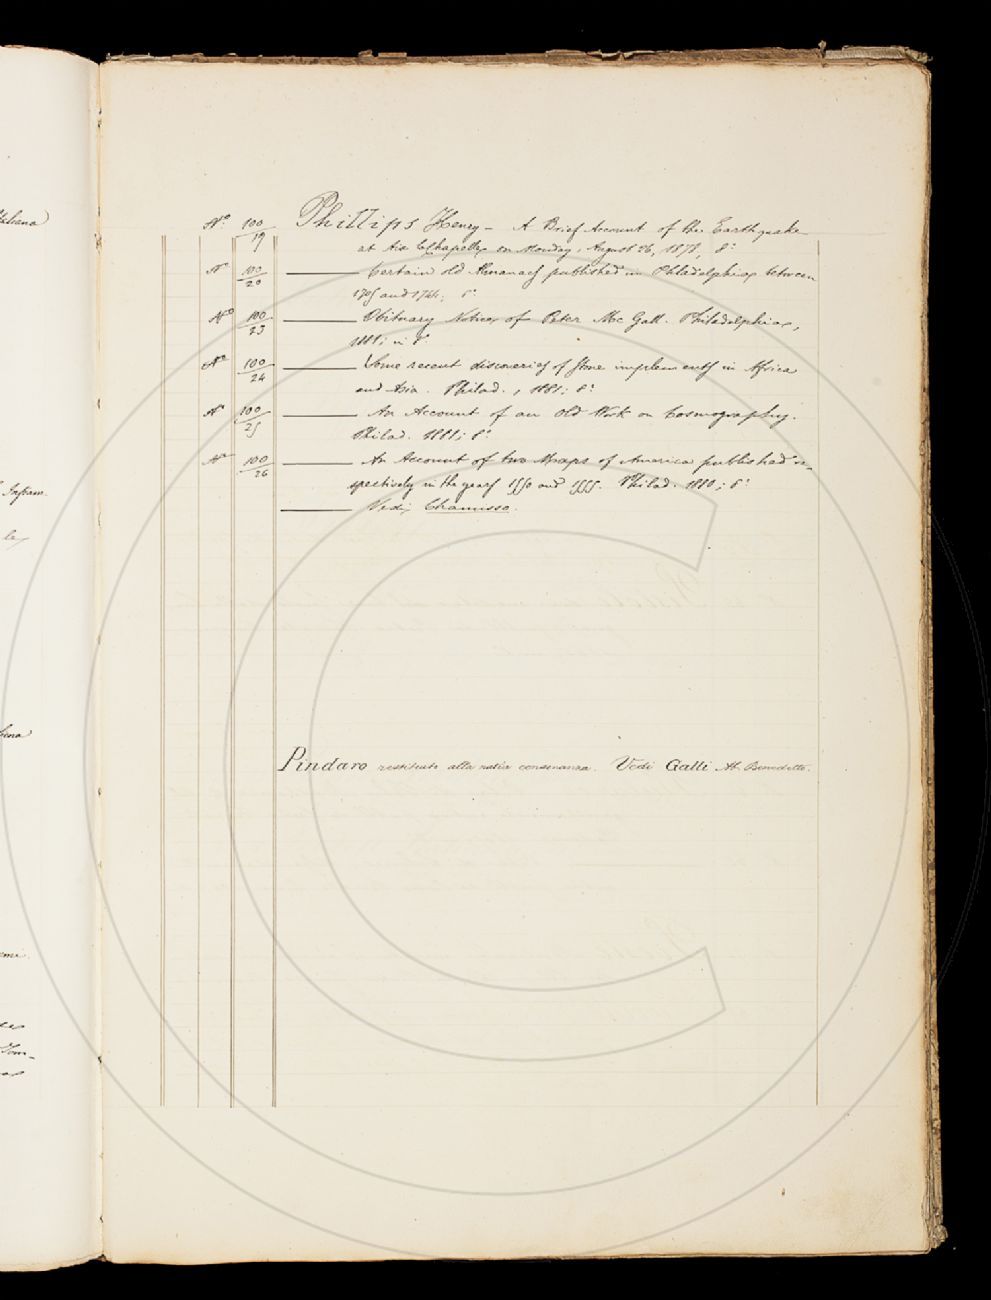 Italiana
Nº 100/19 Phillips Henry - A Brief Account of the Earthquake
at Aix la Chapelle, on Monday, August 26, 1878, 8º
Nº 100/20 ——— Certain old Almanacs published in Philadelphia, between
1705 and 1744; 8º
Nº 100/23 ——— Obituary Notice, of Peter Mc Gall. Philadelphia,
1881; in 8º
Nº 100/24 ——— Some recent discoveries of Stone implements in Africa
and Asia. Philad., 1881; 8º
Nº 100/25 ——— An Account of an Old Work on Cosmography.
Philad. 1881; 8º
Nº 100/26 ——— An Account of two Maps of America published re-
spectively in the years 1550 and 1555. Philad. 1880; 8º
——— Vedi, Chamisso.
Pindaro restituito alla natia consonanza. Vedi Galli Ab. Benedetto.